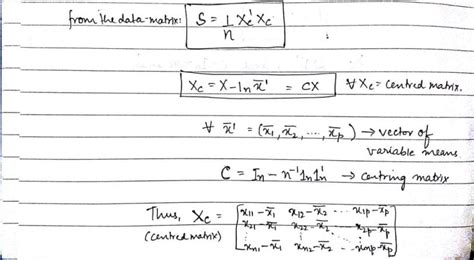 from the data-matrix: S = 1/n Xc' Xc
Xc = X - 1n x̄' = CX ∀ Xc = Centred matrix.
∀ x̄' = (x̄1, x̄2, ..., x̄p) → vector of
variable means.
C = In - n⁻¹ 1n 1n' → centring matrix
Thus, Xc = [x11 - x̄1 x12 - x̄2 ... x1p - x̄p
(centred matrix) x21 - x̄1 x22 - x̄2 ... x2p - x̄p
⋮
xn1 - x̄1 xn2 - x̄2 ... xnp - x̄p]